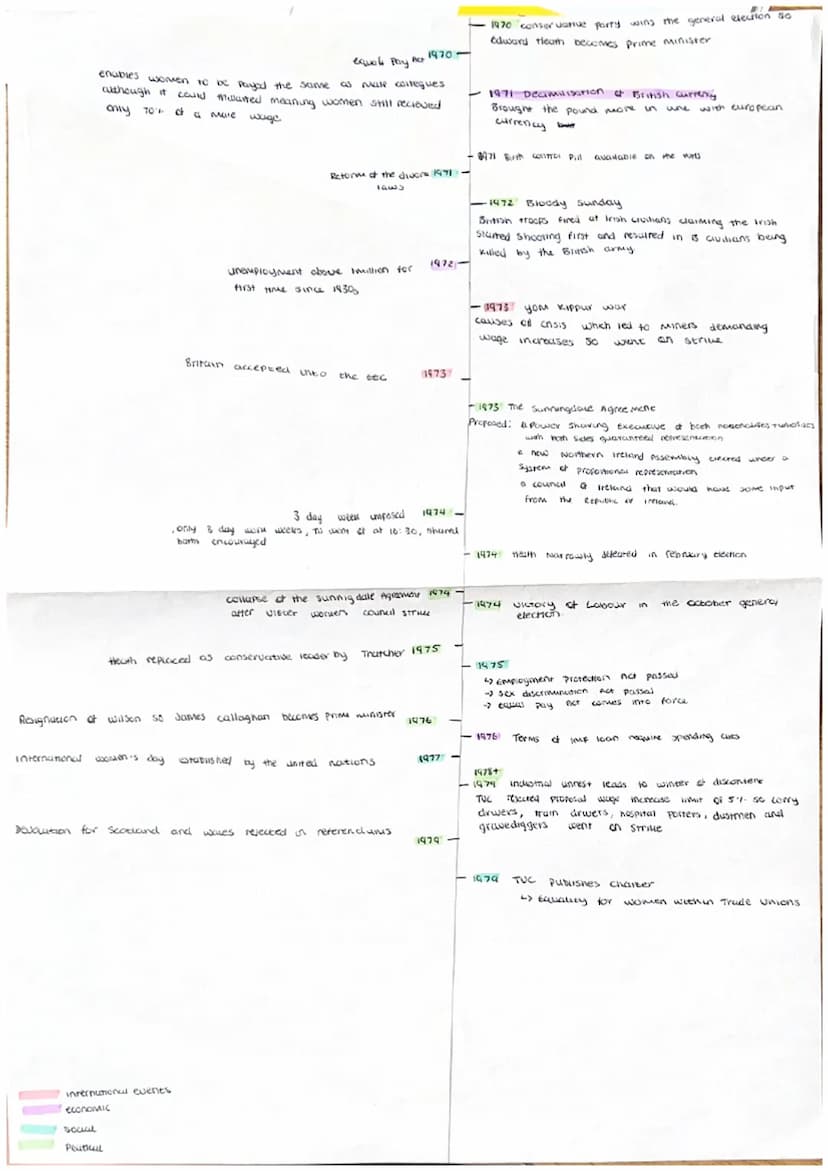 1970 conservative party wins the general election so
Edward Heath becomes prime minister
Equal Pay Act 1970
enables women to be payed the same as male collegues
although it could meaning women still recieved
only 70% of a male wage
1971 Decimilisation of British currency
Brought the pound more in line with european
currency
1971 Birth control pill available on the
Reform of the divorce 1971
laws
1972 Bloody Sunday
British troops fired at Irish civilians claiming the Irish
started shooting first and resulted in 13 civilians being
killed by the British army.
unemployment above 1 million for 1972
first time since 1930s
1973 Yom Kippur war
causes oil crisis which led to miners demanding
wage increases so went on strike
Britain accepted into the EEC 1973
1973 The Sunningdale Agreement
Proposed: a Power sharing executive of both nationalists + unionists
with both sides guaranteed representation
a new Northern Ireland Assembly elected under a
system of proportional representation
a council of Ireland that would have some input
from the Republic of Ireland.
3 day week imposed 1974
only 3 day work weeks, TV went off at 10:30, shared
baths encouraged
1974 Heath narrowly defeated in february election
collapse of the Sunnigdale Agreement 1974
after Ulster workers council strike
1974 victory of Labour in the October general
election
Heath replaced as conservative leader by Thatcher 1975
1975
↳ Employment Protection Act passed
→ Sex discrimination Act passed
→ equal pay act comes into force
Resignation of Wilson so James Callaghan becomes prime minister 1976
1976 Terms of IMF loan require spending cuts
International women's day established by the united nations 1977
1978+
1979 industrial unrest leads to winter of discontent
TUC rejected proposal wage increase limit of 5% so lorry
drivers, train drivers, hospital porters, dustmen and
gravediggers went on strike
Devolution for Scotland and wales rejected in referendums
1979
1979 TUC publishes charter
↳ Equality for women within Trade Unions
international events
economic
social
Political